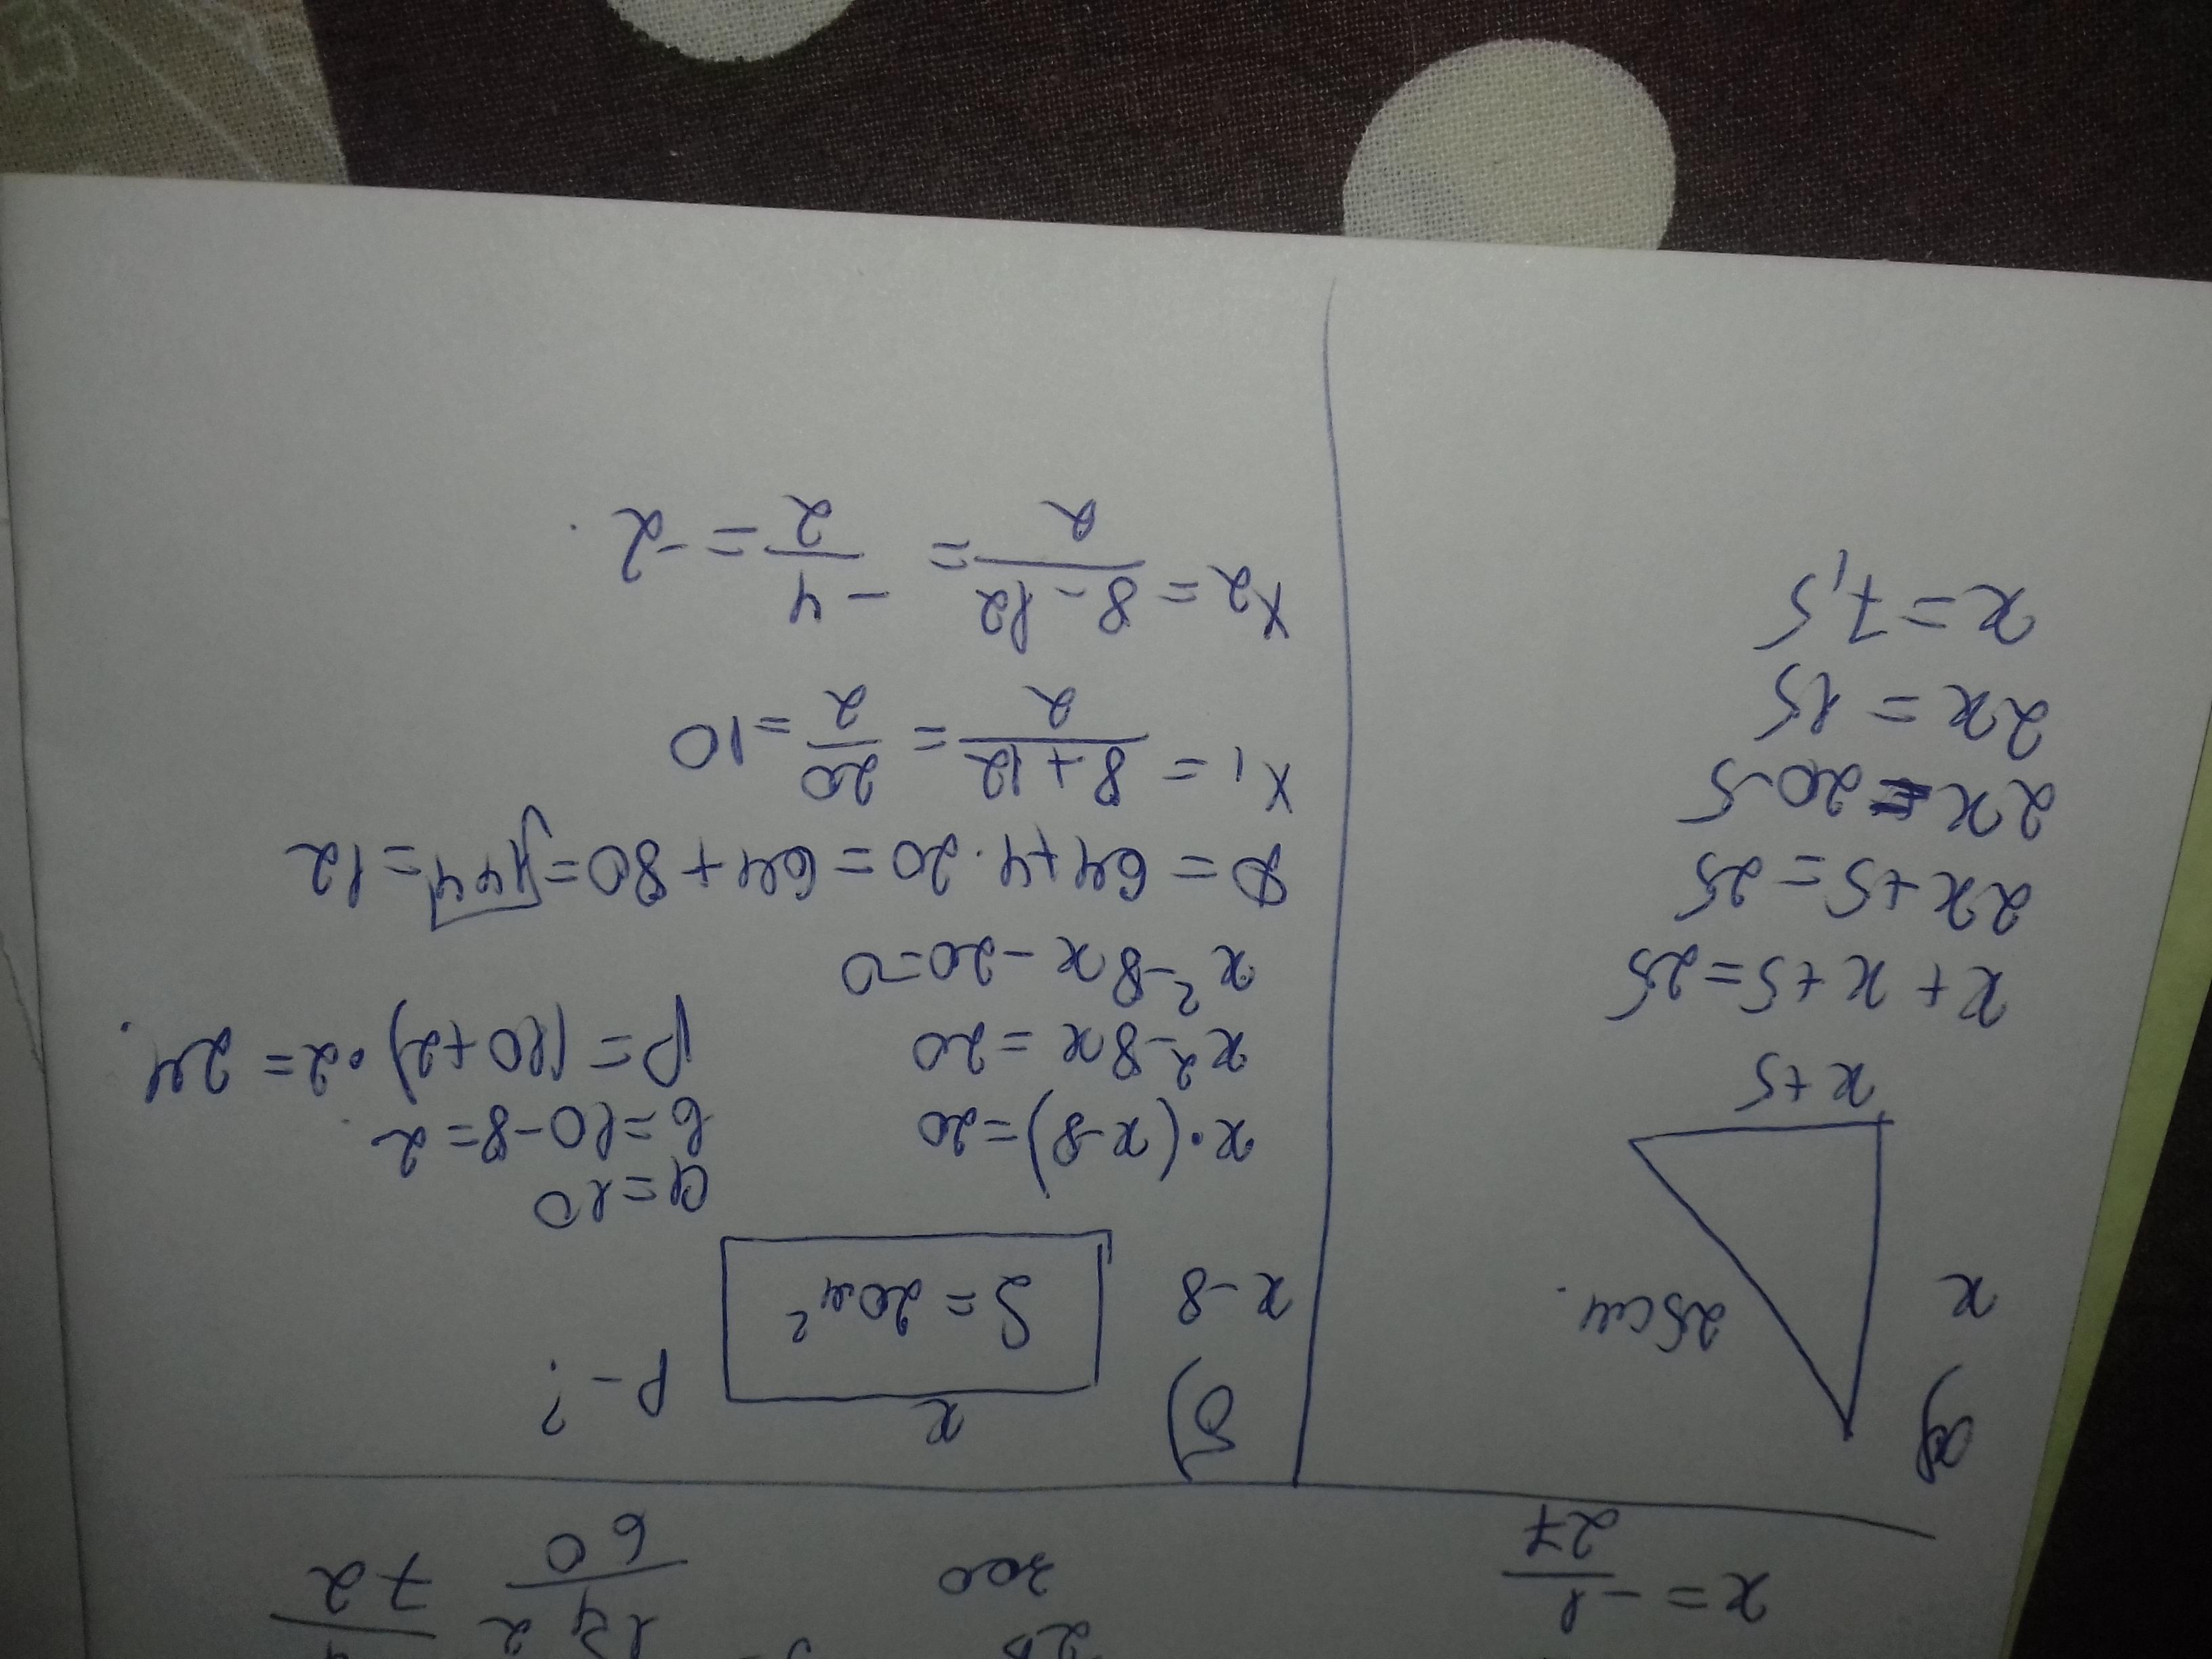 x = -1/27
200
60
72
а)
x
25 см.
x+5
x + x + 5 = 25
2x + 5 = 25
2x = 20-5
2x = 15
x = 7,5
б)
x
P - ?
x-8
S = 20м²
x·(x-8) = 20
x² - 8x = 20
x² - 8x - 20 = 0
D = 64 + 4·20 = 64 + 80 = √144 = 12
x₁ = (8+12)/2 = 20/2 = 10
x₂ = (8-12)/2 = -4/2 = -2.
a = 10
b = 10-8 = 2.
P = (10+2)·2 = 24.